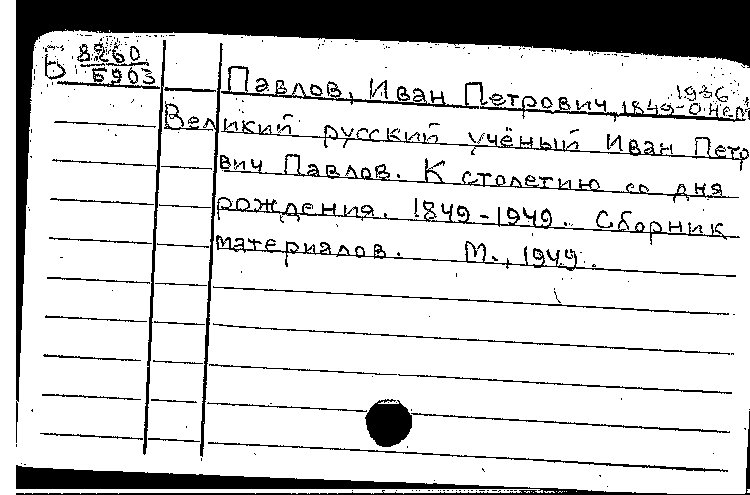 Б 8260
Б903
Павлов, Иван Петрович, 1849-1936 О нем
Великий русский учёный Иван Петр
вич Павлов. К столетию со дня
рождения. 1849-1949. Сборник
материалов. М., 1949.